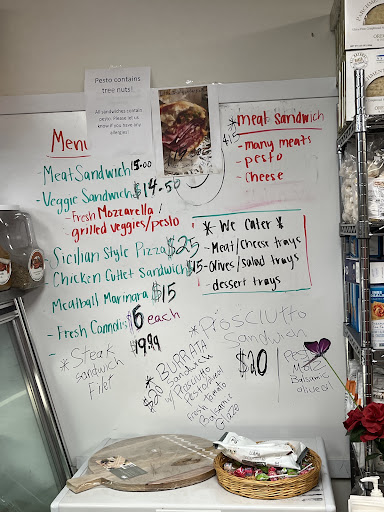 Pesto contains
tree nuts!
All sandwiches contain
pesto. Please let us
know if you have any
allergies!
Menu
- Meat Sandwich 15.00
- Veggie Sandwich $14.50
- Fresh Mozzarella!
grilled veggies/pesto
- Sicilian Style Pizza $25
Chicken Cutlet Sandwich $15
- Meatball Marinara $15
- Fresh Cannolis $6 each
-
* Steak $19.99
Sandwich
Filet
*meat Sandwich
- many meats
- pesto
- cheese
* We Cater *
- Meat/Cheese trays
- Olives/salad trays
- dessert trays
* BURRATA
Sandwich
$20 w/ Prosciutto
Pesto/basil
Fresh tomato
Balsamic
Glaze
*Prosciutto
Sandwich
$20
Pesto
Balsamic
olive oil